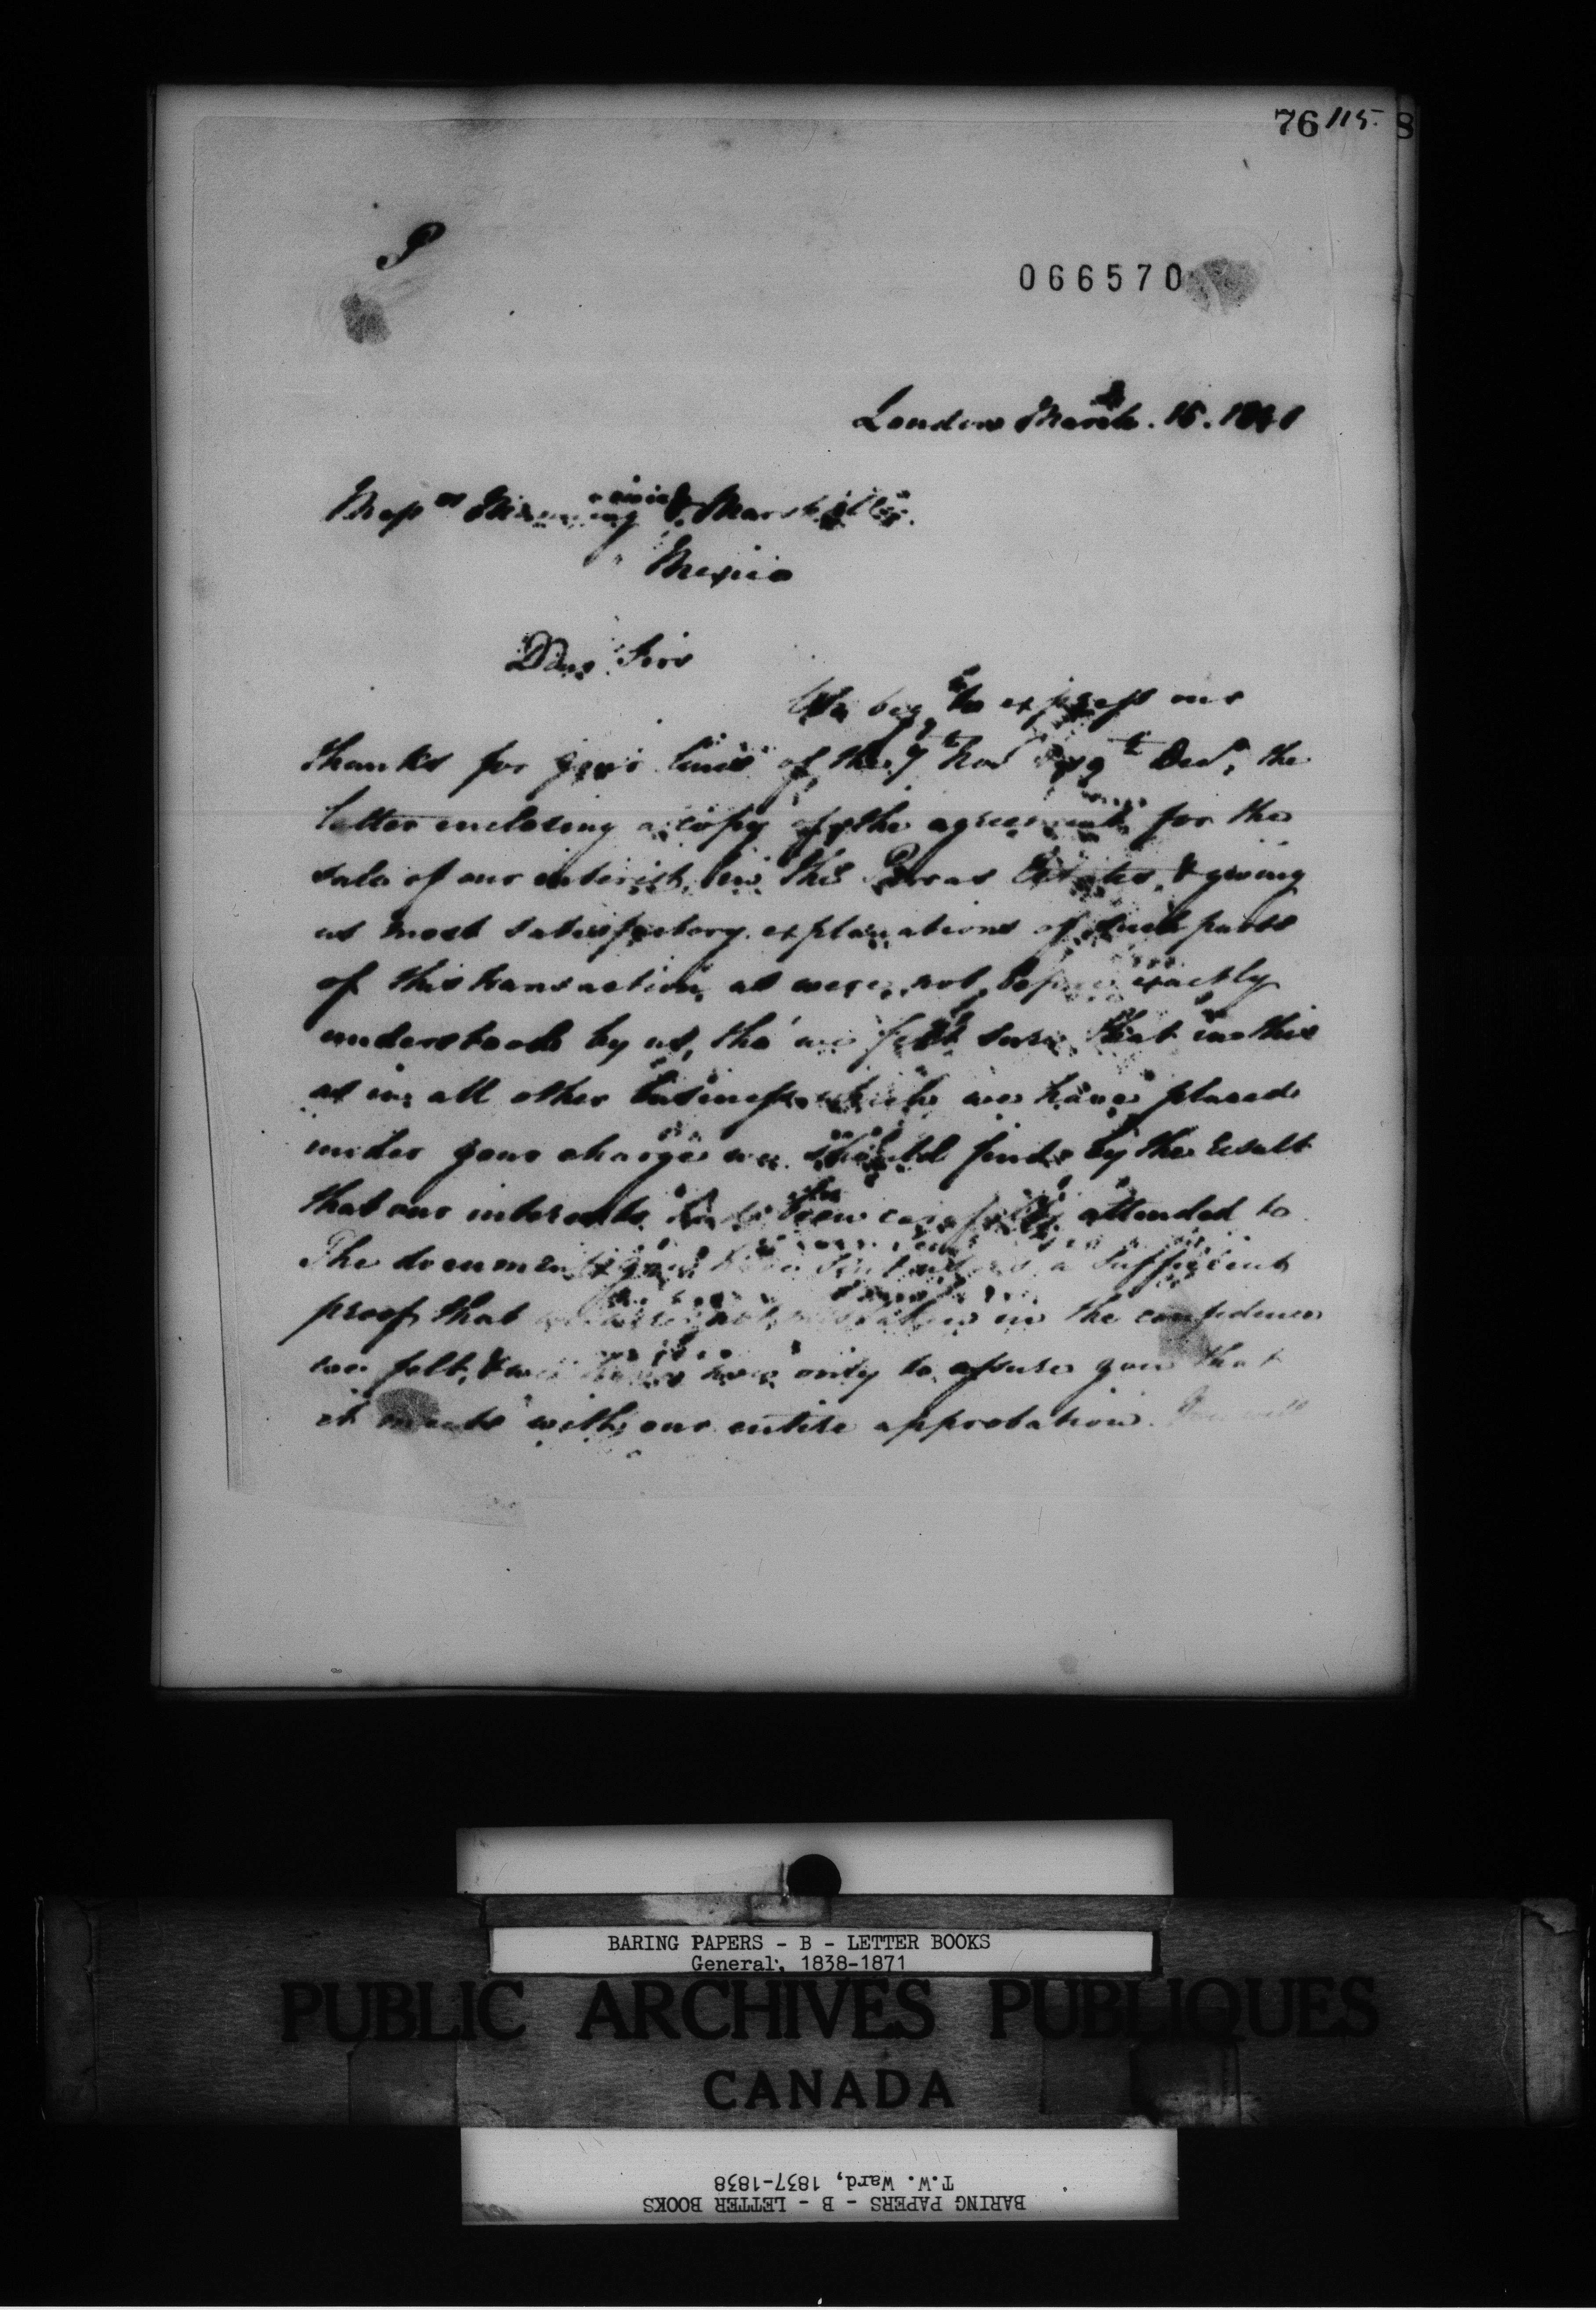 76 115. 8
P
066570
London March. 15. 1841
Mess rs Manning & Marshall
Mexico
Dear Sirs
We beg to express our
thanks for your lines of the 7th Nov & 9th Decr, the
latter enclosing a copy of the agreement for the
sale of our interest in the Parras Estates, & giving
us most satisfactory explanations of such parts
of this transaction, as were not before exactly
understood by us, tho' we felt sure that in this
as in all other business which we have placed
under your charge we should find by the result
that our interests had been carefully attended to
The documents you have sent us is a sufficient
proof that we were not mistaken in the confidence
we felt, & we have now only to assure you that
it meets with our entire approbation. You will
BARING PAPERS - B - LETTER BOOKS
General, 1838-1871
PUBLIC ARCHIVES PUBLIQUES
CANADA
T.W. Ward, 1837-1838
BARING PAPERS - B - LETTER BOOKS